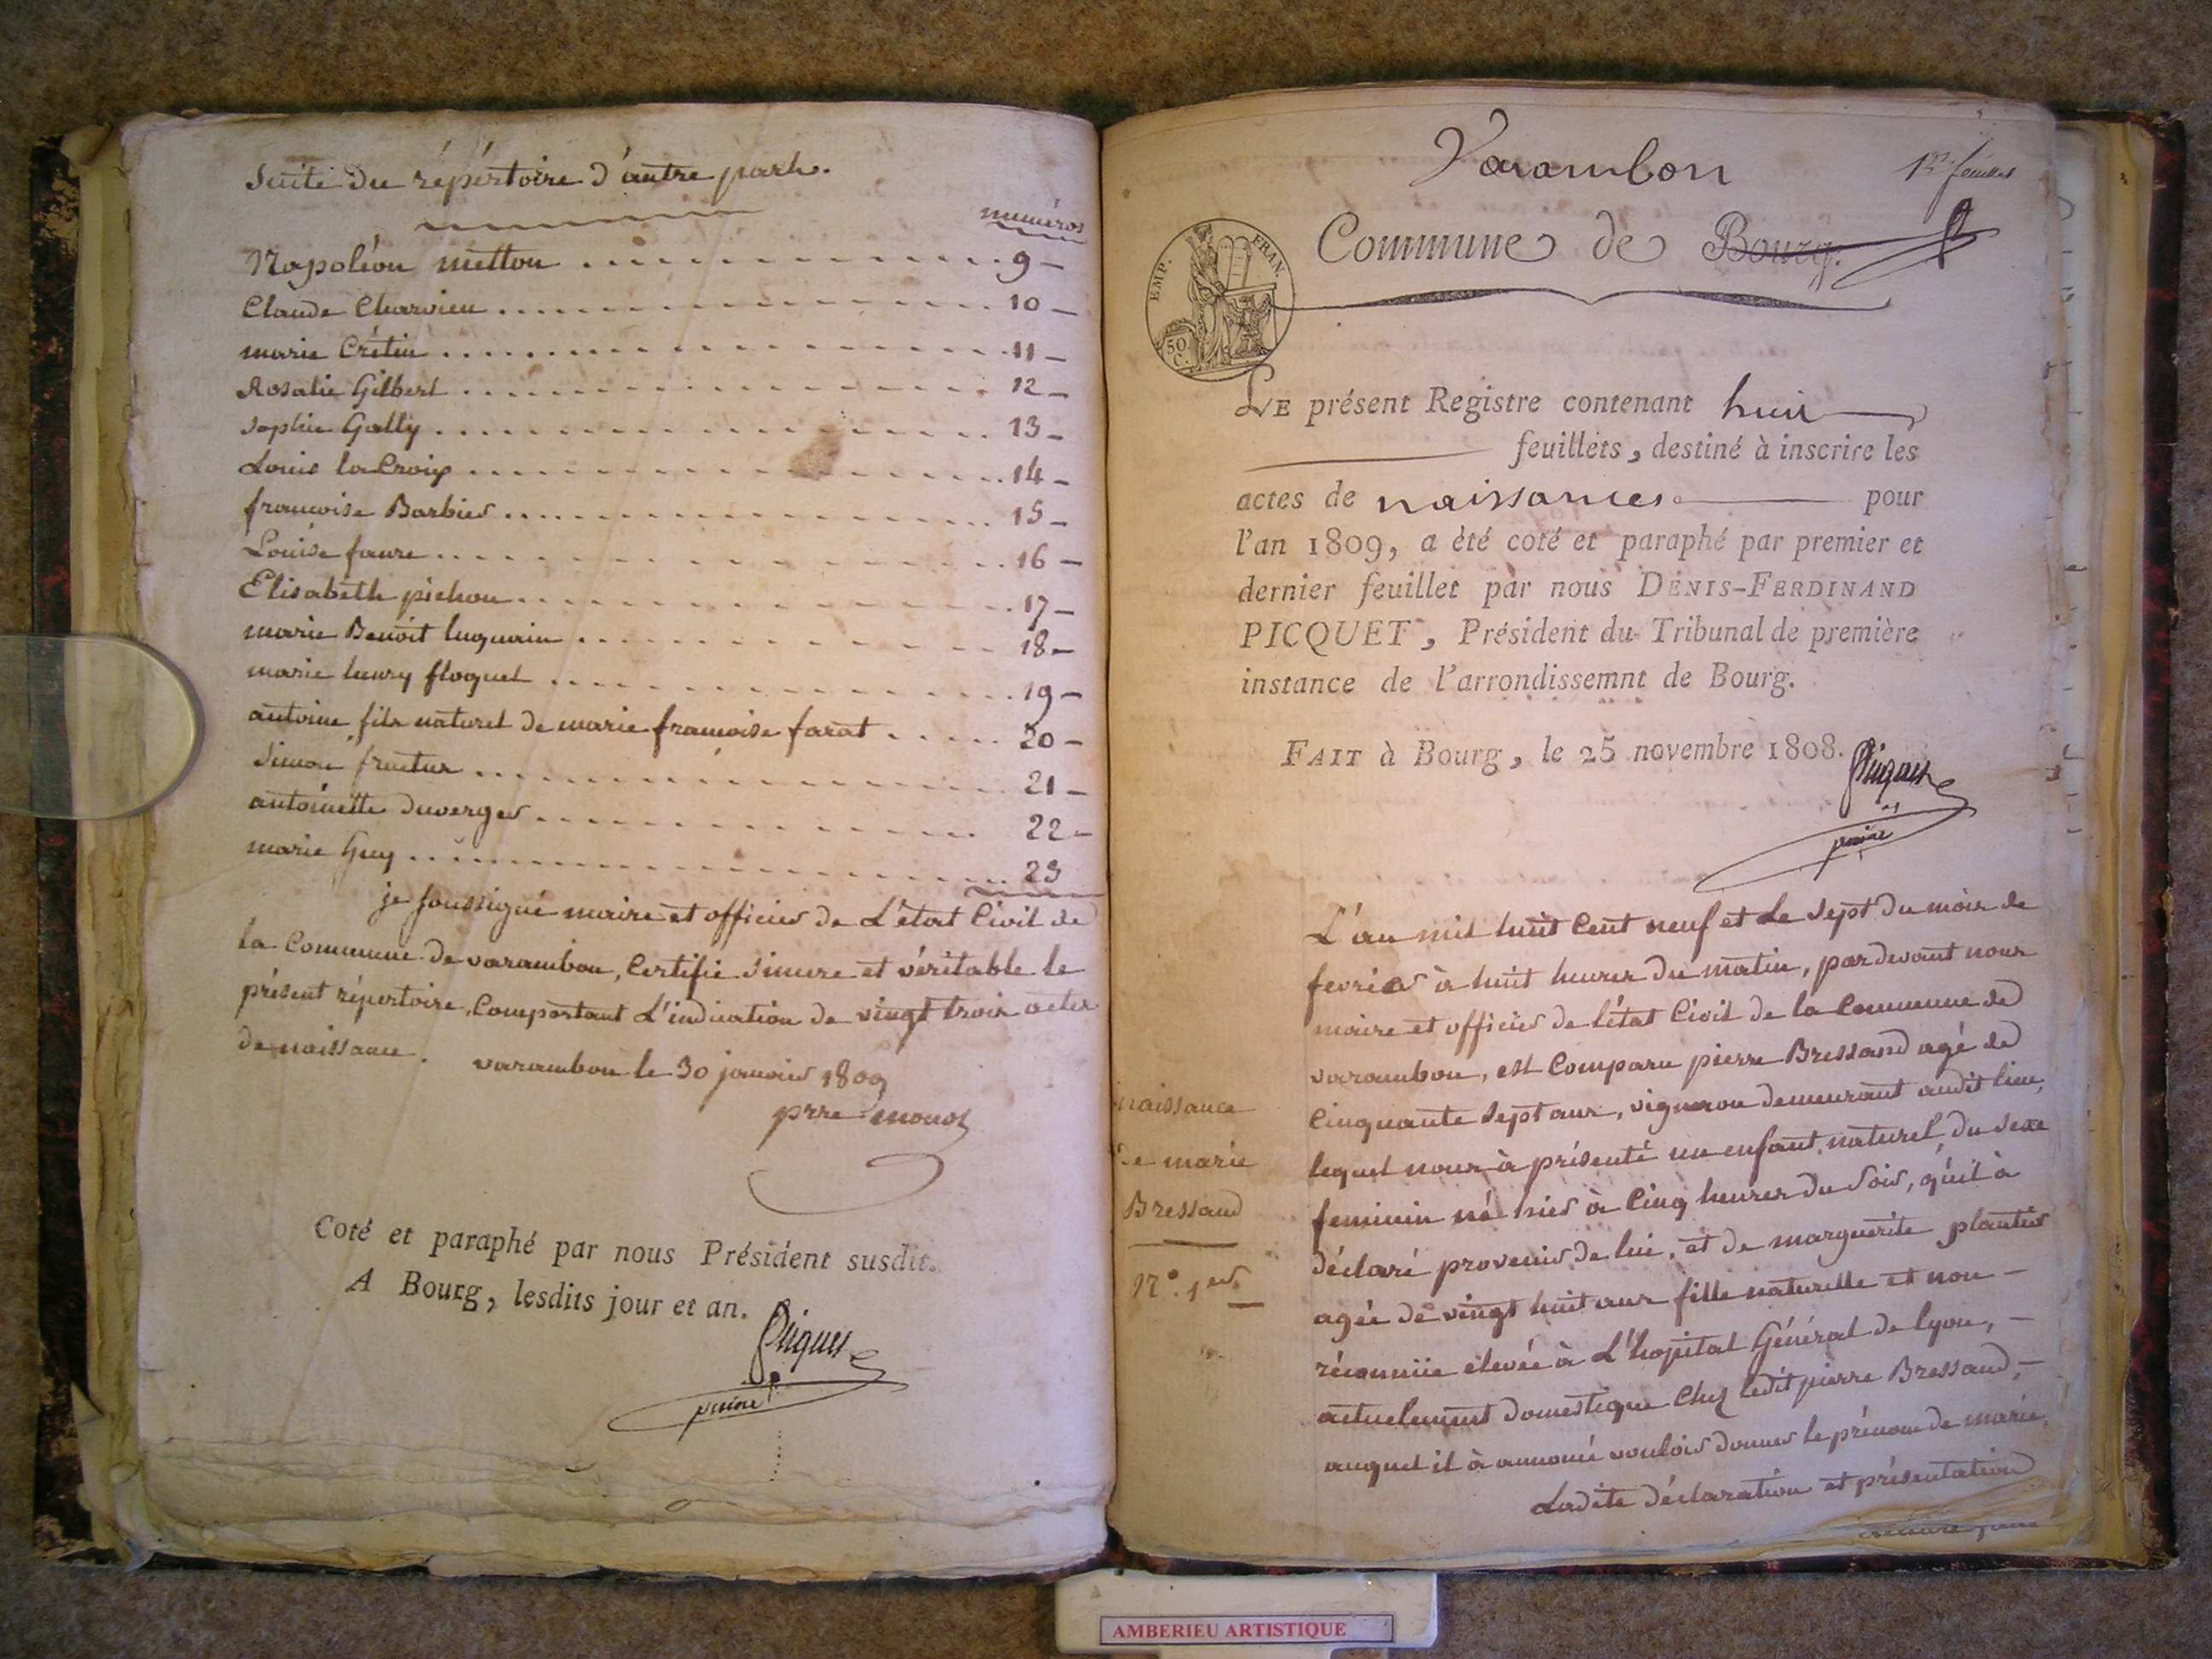 Suite du répértoire d'autre part.
numéros
Napoléon metton 9 —
Claude Charvieu 10 —
marie Crétin 11 —
Rosalie Gilbert 12 —
Sophie Gally 13 —
Louis la Croix 14 —
francoise Barbier 15 —
Louise faure 16 —
Elisabeth pichon 17 —
marie Benoit luquain 18 —
marie henry floquet 19 —
antoine fils naturel de marie francoise farat 20 —
Simon 21 —
antoinette duverger 22 —
marie Guy 23
je soussigné maire et officier de L'état Civil de
la Commune de varambon, Certifie sincere et véritable le
présent répertoire, Comportant L'indication de vingt trois actes
de naissance.
varambon le 30 janvier 1809
prre
Coté et paraphé par nous Président susdit.
A Bourg, lesdits jour et an.
Picquet
Varambon
1er feuillet
Commune de Bourg.
EMP. FRAN.
50 C.
LE présent Registre contenant huit
feuillets, destiné à inscrire les
actes de naissances pour
l'an 1809, a été coté et paraphé par premier et
dernier feuillet par nous DENIS-FERDINAND
PICQUET, Président du Tribunal de première
instance de l'arrondissemnt de Bourg.
FAIT à Bourg, le 25 novembre 1808.
Picquet
L'an mil huit Cent neuf et Le sept du mois de
fevrier à huit heures du matin, pardevant nous
maire et officier de l'état Civil de la Commune de
varambon, est Comparu pierre Bressand agé de
Cinquante sept ans, vigneron demeurant audit lieu,
lequel nous à présenté un enfant naturel, du sexe
feminin né hier à Cinq heures du soir, qu'il à
déclaré provenir de lui, et de marguerite plantier
agée de vingt huit ans fille naturelle et non —
réconnüe elevée à L'hopital Général de lyon, —
actuelement domestique Chez ledit pierre Bressand, —
auquel il à annoncé vouloir donner le prénom de marie,
Ladite déclaration et présentation
naissance
de marie
Bressand
N°. 1er
AMBERIEU ARTISTIQUE